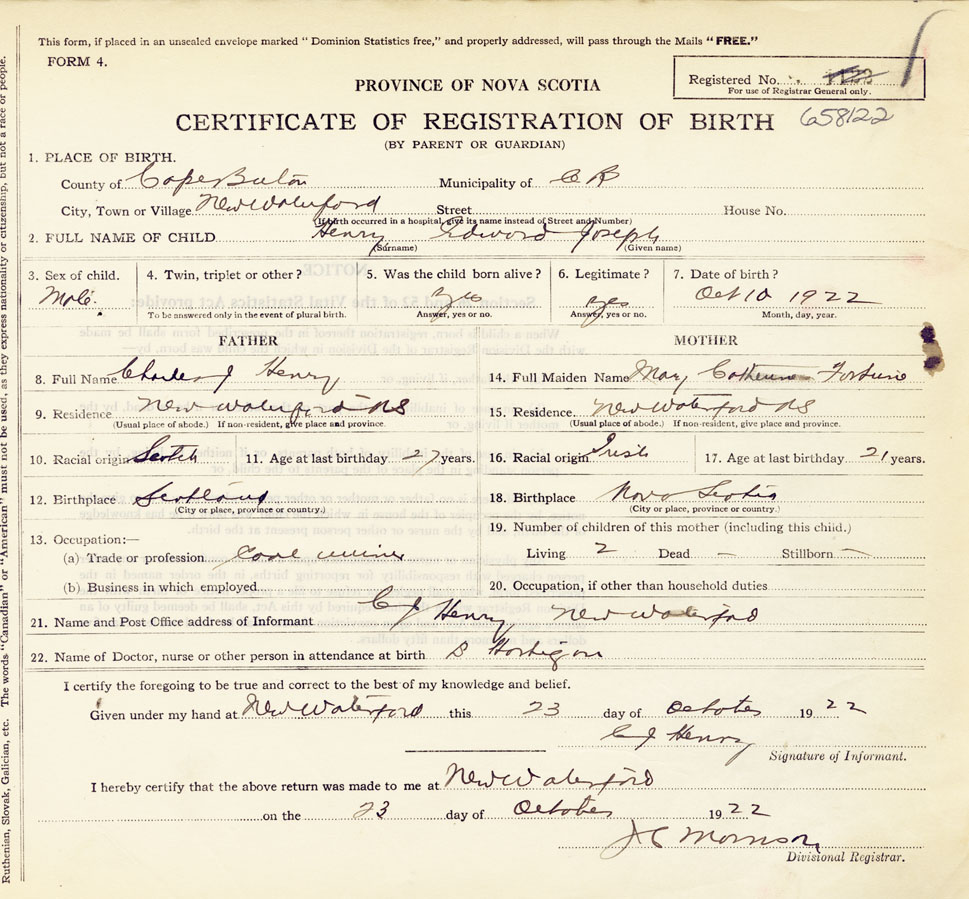 This form, if placed in an unsealed envelope marked "Dominion Statistics free," and properly addressed, will pass through the Mails "FREE."
FORM 4.
Registered No. 1122
For use of Registrar General only.
PROVINCE OF NOVA SCOTIA
CERTIFICATE OF REGISTRATION OF BIRTH 658122
(BY PARENT OR GUARDIAN)
1. PLACE OF BIRTH.
County of Cape Breton Municipality of C B
City, Town or Village New Waterford Street House No.
(If birth occurred in a hospital, give its name instead of Street and Number)
2. FULL NAME OF CHILD Henry Edward Joseph
(Surname) (Given name)
3. Sex of child. 4. Twin, triplet or other? 5. Was the child born alive? 6. Legitimate? 7. Date of birth?
Male. yes yes Oct 10 1922
To be answered only in the event of plural birth. Answer, yes or no. Answer, yes or no. Month, day, year.
FATHER MOTHER
8. Full Name Charles J Henry 14. Full Maiden Name Mary Catherine Fortune
9. Residence New Waterford NS 15. Residence. New Waterford NS
(Usual place of abode.) If non-resident, give place and province. (Usual place of abode.) If non-resident, give place and province.
10. Racial origin Scotch 11. Age at last birthday 27 years. 16. Racial origin Irish 17. Age at last birthday 21 years.
12. Birthplace Scotland 18. Birthplace Nova Scotia
(City or place, province or country.) (City or place, province or country.)
13. Occupation:— 19. Number of children of this mother (including this child.)
(a) Trade or profession Coal miner Living 2 Dead — Stillborn —
(b) Business in which employed 20. Occupation, if other than household duties
21. Name and Post Office address of Informant C J Henry New Waterford
22. Name of Doctor, nurse or other person in attendance at birth
I certify the foregoing to be true and correct to the best of my knowledge and belief.
Given under my hand at New Waterford this 23 day of October 1922
C J Henry
Signature of Informant.
I hereby certify that the above return was made to me at New Waterford
on the 23 day of October 1922
J C Morrison
Divisional Registrar.
The words "Canadian" or "American" must not be used, as they express nationality or citizenship, but not a race or people.
Ruthenian, Slovak, Galician, etc.